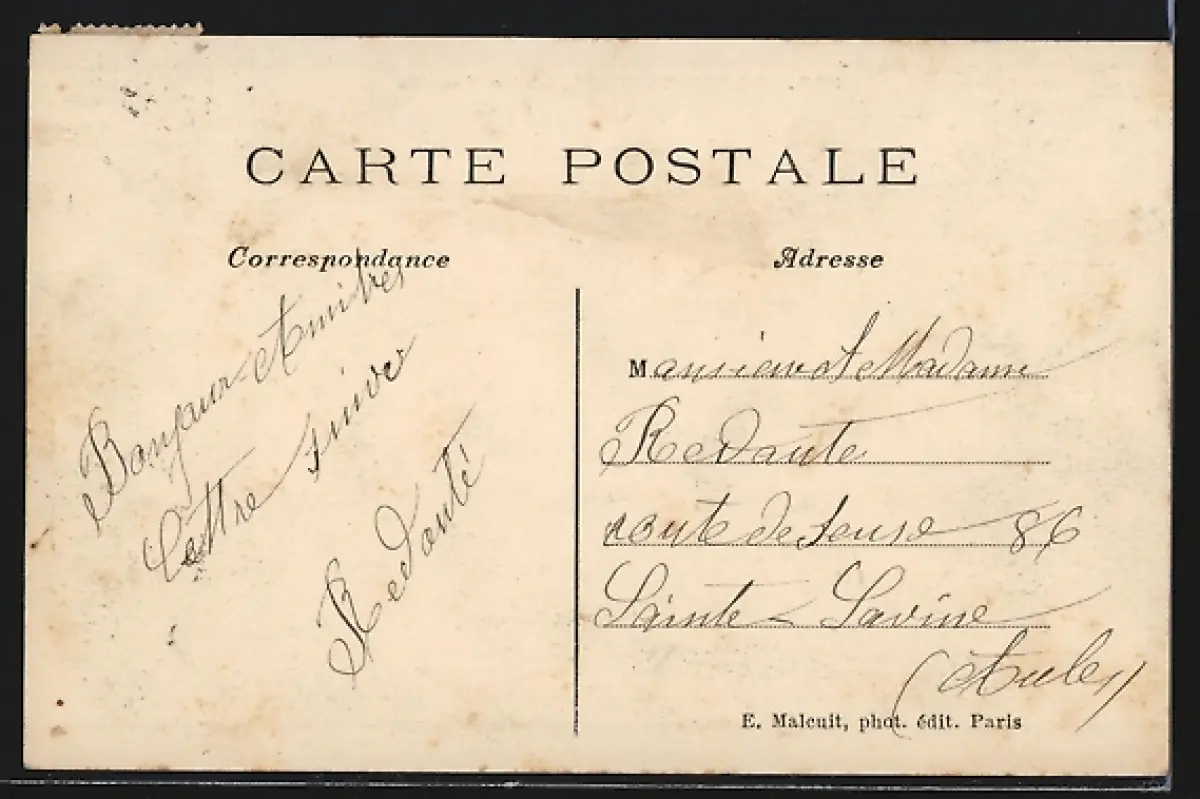 CARTE POSTALE
Correspondance
Bonjour et Amities
Lettre suiver
Redouté
Adresse
Monsieur et Madame
Redoute
route de Sens 86
Sainte-Savine
(Aube)
E. Malcuit, phot. édit. Paris